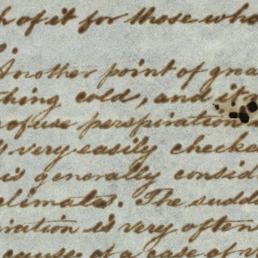 h of it for those who
Another point of grea
thing cold, and it
rofuse perspiration
very easily checke
is generally consid
climates. The sudde
iration is very often
cause of a case of